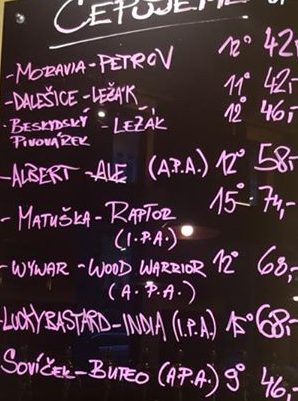 ČEPUJEME
- MORAVIA - PETROV 12° 42,-
- DALEŠICE - LEŽÁK 11° 42,-
- BESKYDSKÝ PIVOVÁREK - LEŽÁK 12° 46,-
- ALBERT - ALE (A.P.A.) 12° 58,-
- MATUŠKA - RAPTOR 15° 74,-
(I.P.A.)
- WYWAR - WOOD WARRIOR 12° 68,-
(A.P.A.)
- LUCKY BASTARD - INDIA (I.P.A.) 15° 68,-
SOVÍČEK - BUTEO (A.P.A.) 9° 46,-